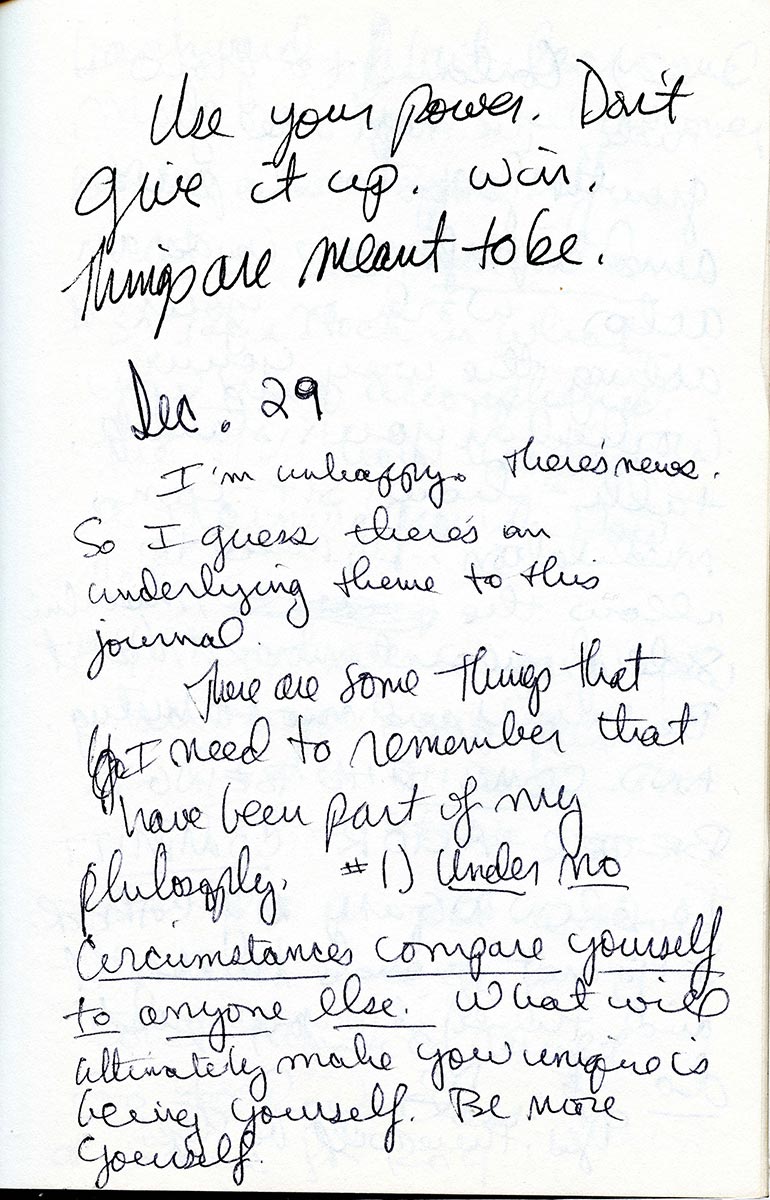 Use your power. Don't
give it up. Win.
Things are meant to be.
Dec. 29
I'm unhappy. There's news.
So I guess there's an
underlying theme to this
journal.
There are some things that
I need to remember that
have been part of my
philosophy. #1) Under no
circumstances compare yourself
to anyone else. What will
ultimately make you unique is
being yourself. Be more
yourself.